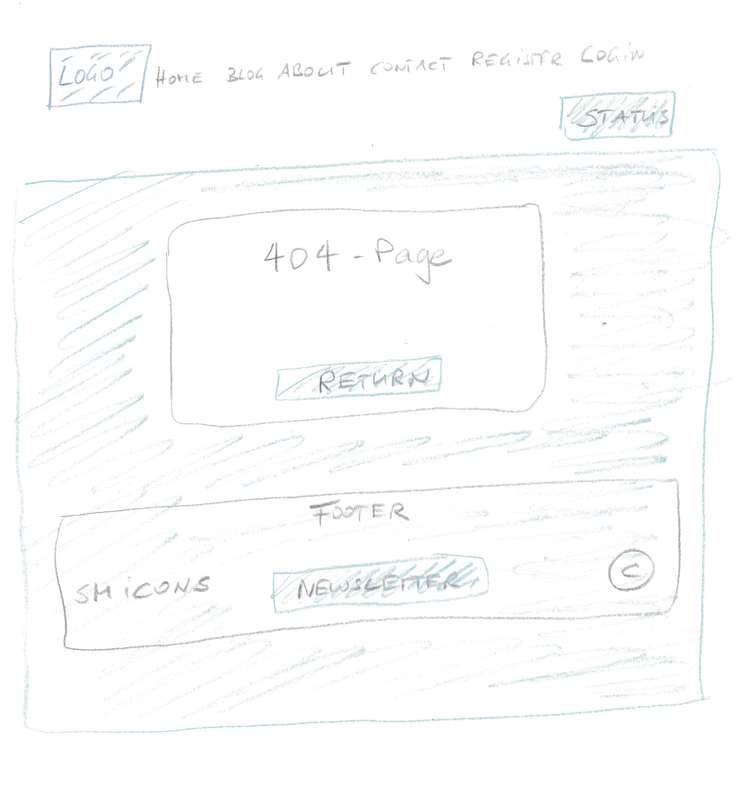 LOGO HOME BLOG ABOUT CONTACT REGISTR LOGIN
STATUS
404 - Page
RETURN
FOOTER
SM iCONS NEWSLETTER C